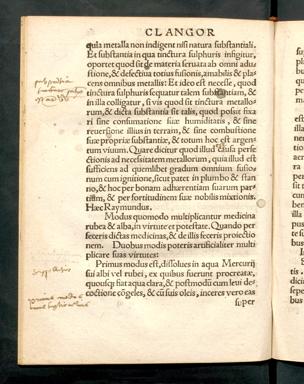 CLANGOR
quia metalla non indigent nisi natura substantiali.
Et substantia in qua tinctura sulphuris infigitur,
oportet quod sit de materia seruata ab omni adu
stione, & defectiua totius fusionis, amabilis & pla
cens omnibus metallis: Et ideo est necesse, quod
tinctura sulphuris sequatur talem substantiam, &
in illa colligatur, si vis quod sit tinctura metallo-
rum, & dicta substantia sit talis, quod possit fixa
ri sine consumatione suæ humiditatis, & sine
reuersione illius in terram, & sine combustione
suæ propriæ substantiæ, & totum hoc est argen
tum viuum. Quare dicitur quod illud
ctionis ad necessitatem metallorum, quia illud est
sufficiens ad quemlibet gradum omnium fusio
num cum ignitione, sicut patet in plumbo & stan
no, & hoc per bonam adhærentiam suarum par-
tium, & per fortitudinem suæ nobilis mixtionis.
Hæc Raymundus.
Modus quomodo multiplicantur medicinæ
rubea & alba, in virtute et potestate. Quando per
feceris dictas medicinas, & de illis feceris proiectio
nem. Duobus modis poteris artificialiter multi
plicare suas virtutes:
Primus modus est, dissolues in aqua Mercurij
sui albi vel rubei, ex quibus fuerunt procreatæ,
quousque fiat aqua clara, & postmodū cum leui de-
coctione cōgeles, & cū suis oleis, inceres vero eas
super